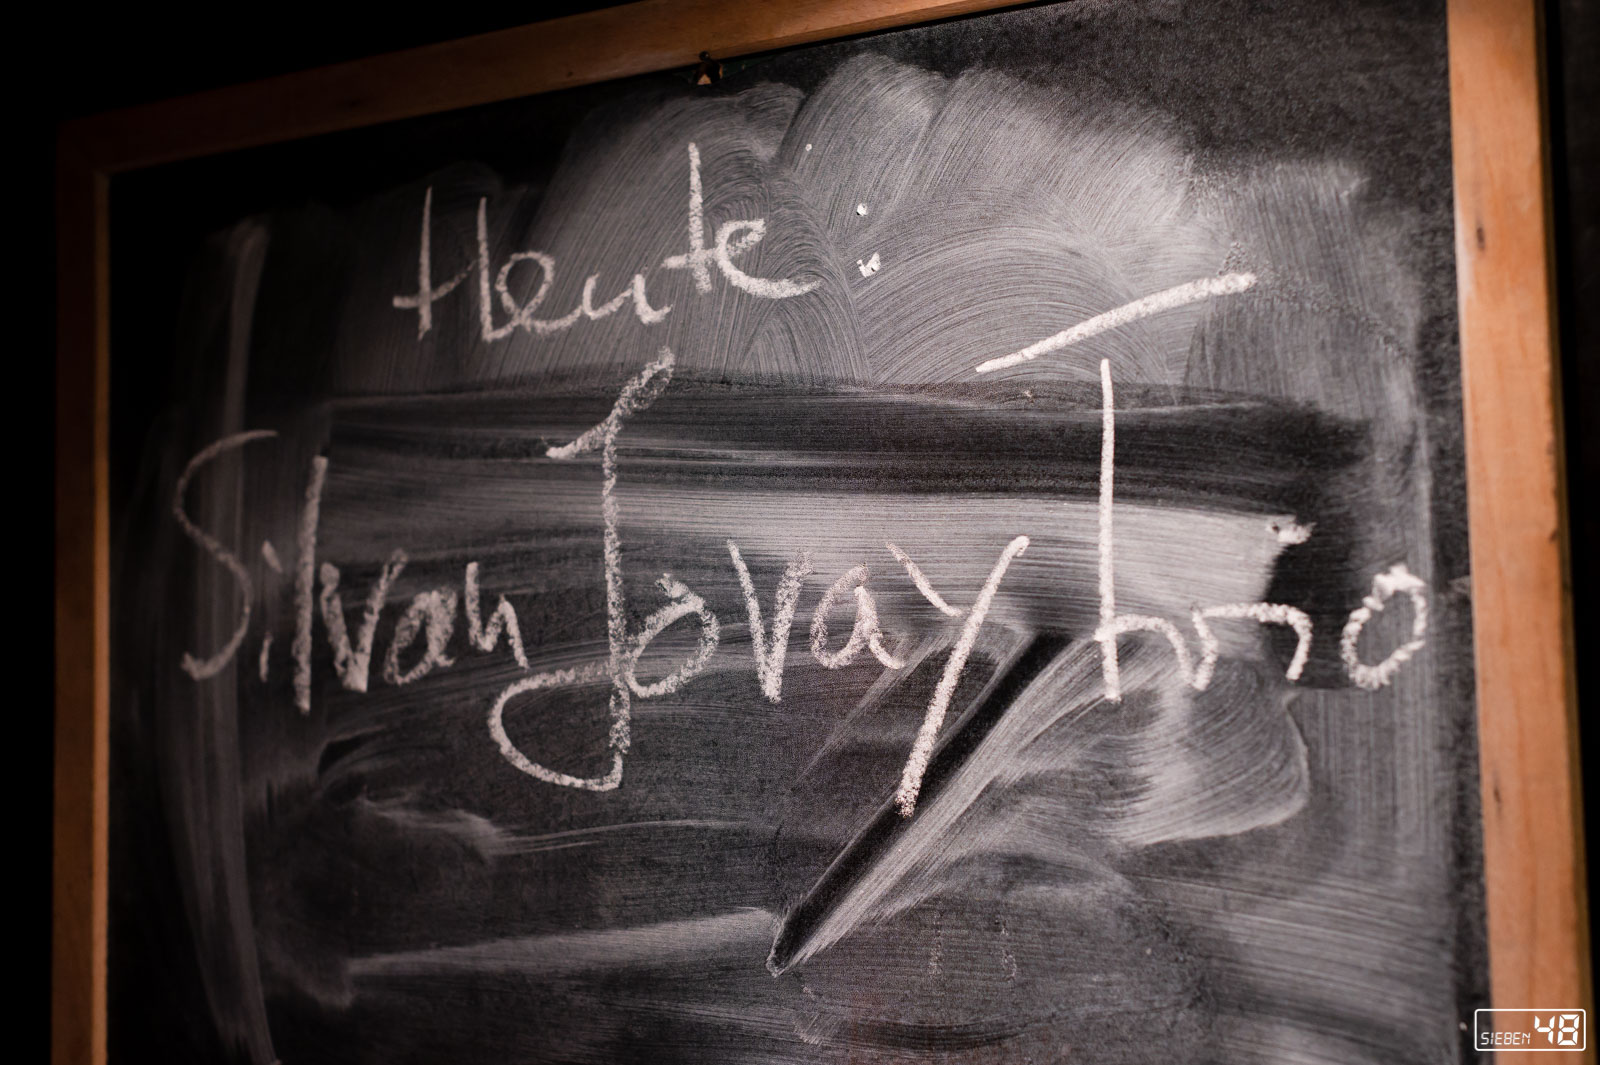 Heute:
Silvan Jovay Trio
SIEBEN 48